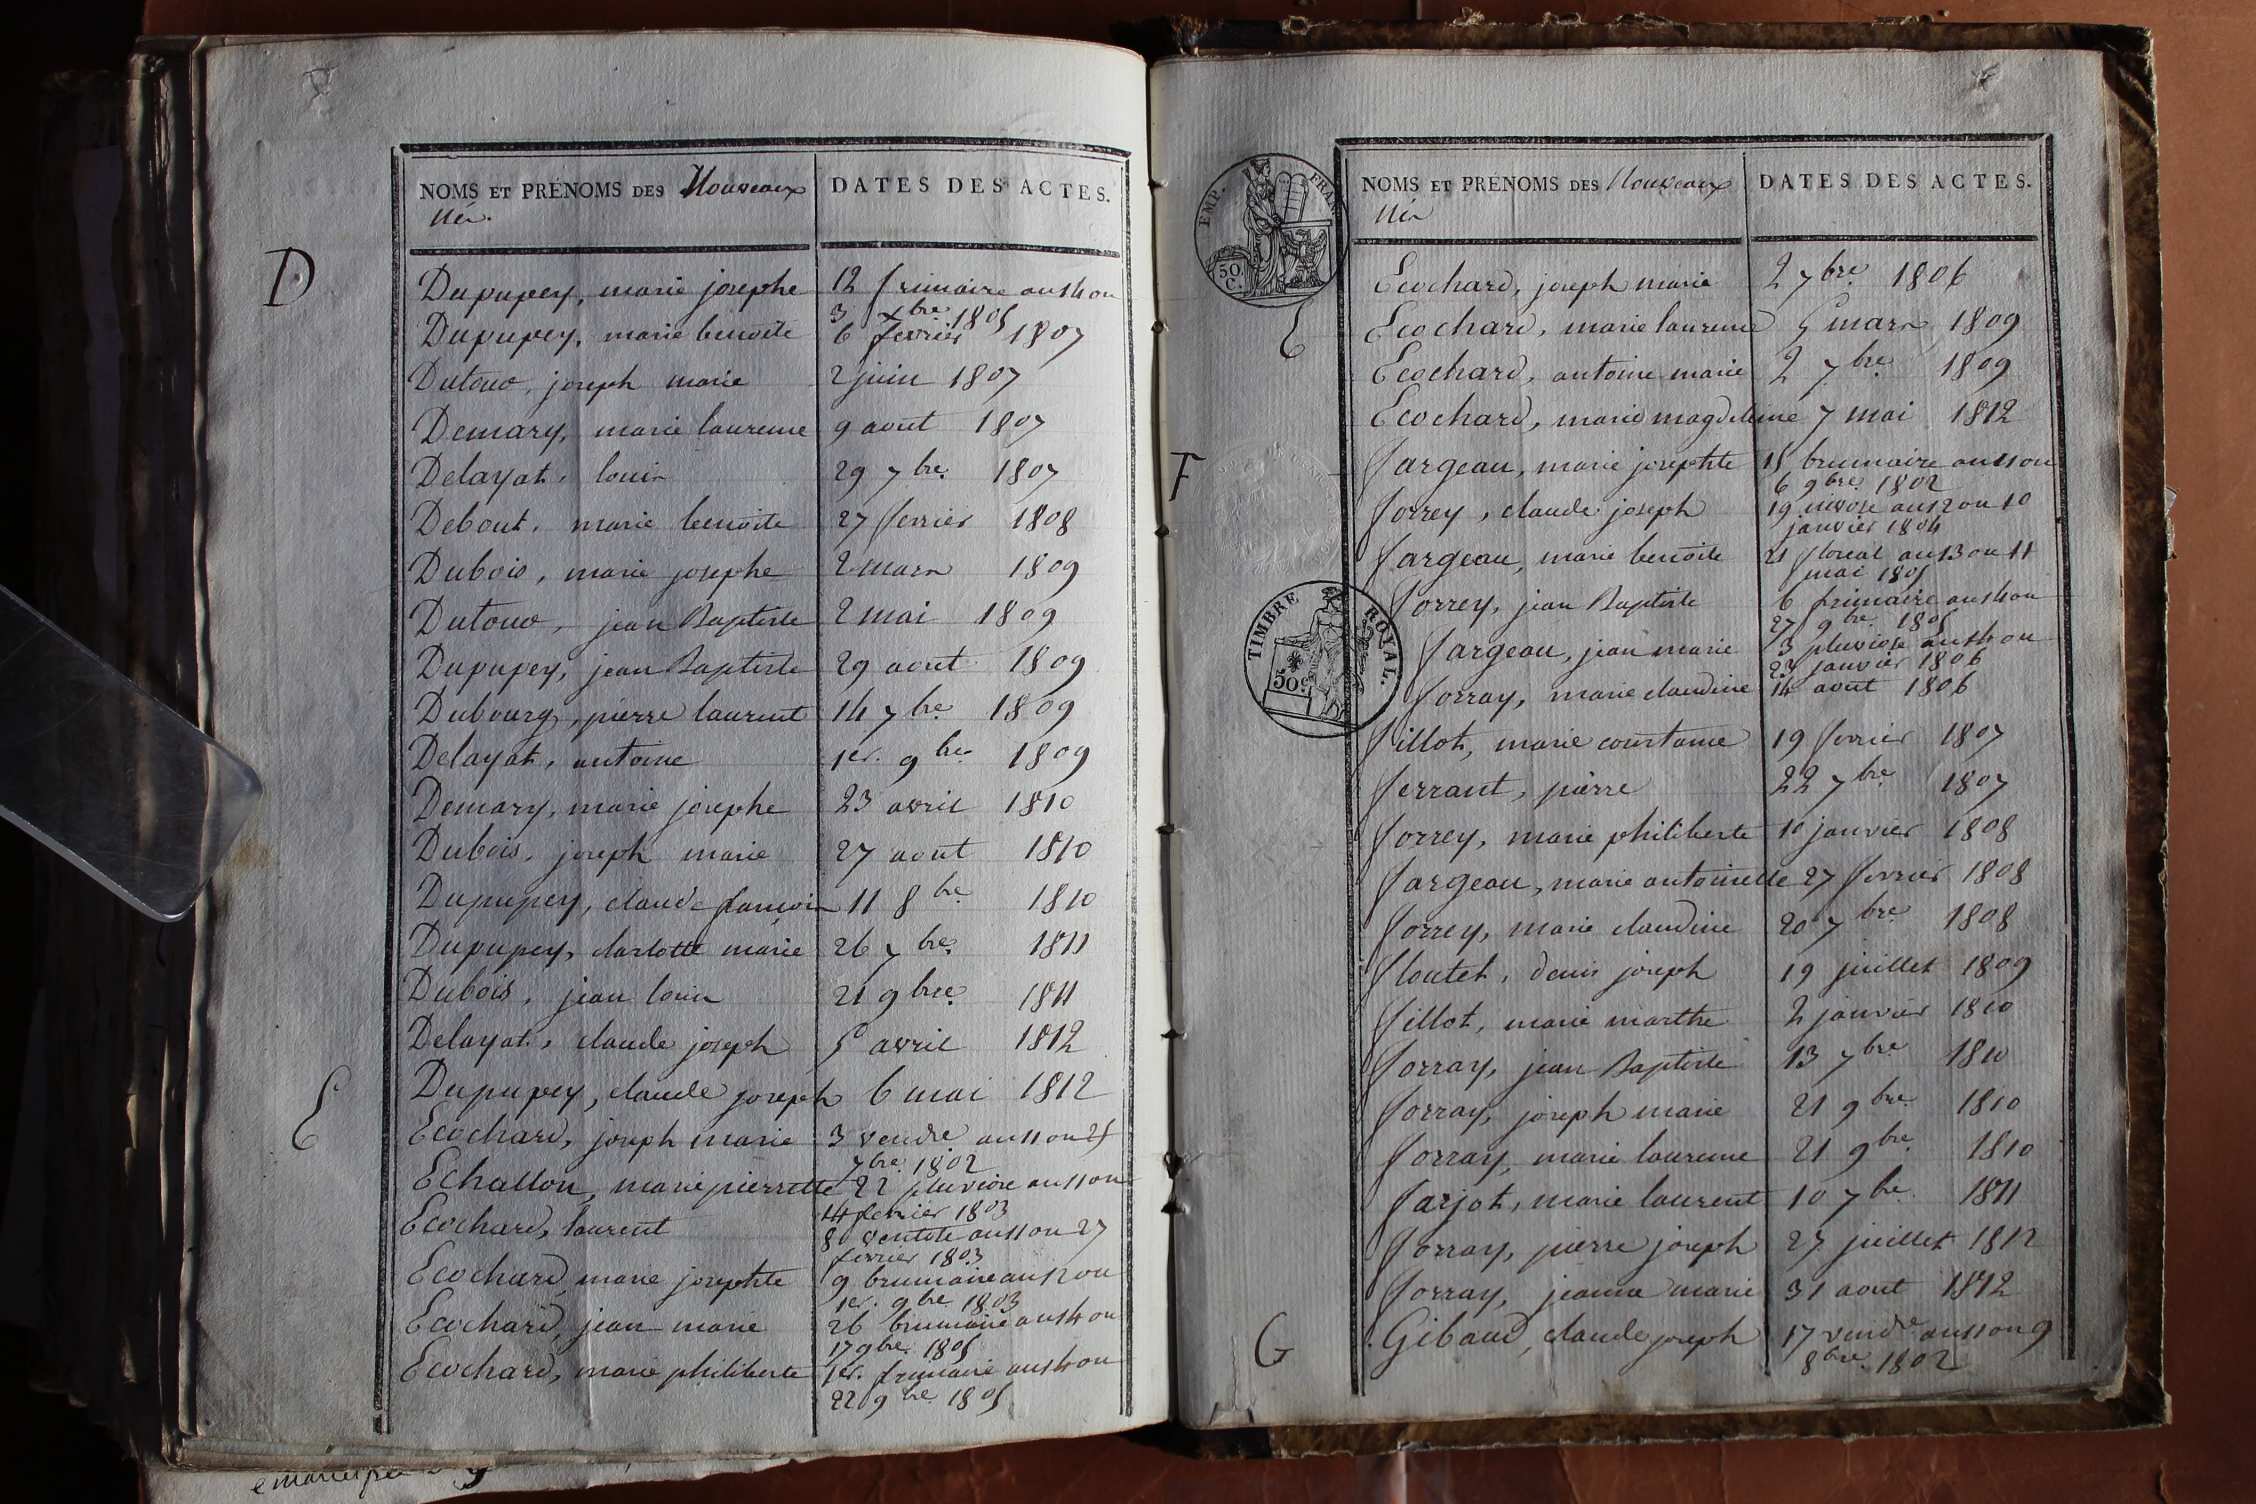 NOMS ET PRÉNOMS DES Nouveaux
Nés.
DATES DES ACTES.
D
Dupupey, marie josephe 12 frimaire an 14 ou
3 xbre 1805
Dupupey, marie benoite 6 fevrier 1807
Dutouo, joseph marie 2 juin 1807
Demary, marie laurence 9 aout 1807
Delayat, louis 29 7bre 1807
Debout, marie benoite 27 fevrier 1808
Dubois, marie josephe 2 mars 1809
Dutouo, jean Baptiste 2 mai 1809
Dupupey, jean Baptiste 29 aout 1809
Dubourg, pierre laurent 14 7bre 1809
Delayat, antoine 1er. 9bre 1809
Demary, marie josephe 23 avril 1810
Dubois, joseph marie 27 aout 1810
Dupupey, claude françois 11 8bre 1810
Dupupey, charlotte marie 26 7bre 1811
Dubois, jean louis 21 9bre 1811
Delayat, claude joseph 5 avril 1812
Dupupey, claude joseph 6 mai 1812
E
Ecochard, joseph marie 3 vendre an 11 ou 25
7bre 1802
Echallon, marie pierrette 22 pluviose an 11 ou
14 fevrier 1803
Ecochard, laurent 8 ventose an 11 ou 27
fevrier 1803
Ecochard, marie josephte 9 brumaire an 12 ou
1er. 9bre 1803
Ecochard, jean marie 26 brumaire an 14 ou
17 9bre 1805
Ecochard, marie philiberte 1er. frimaire an 14 ou
22 9bre 1805
EMP. FRAN
50.
C.
NOMS ET PRÉNOMS DES Nouveaux
Nés
DATES DES ACTES.
Ecochard, joseph marie 2 7bre 1806
E
Ecochard, marie laurence 5 mars 1809
Ecochard, antoine marie 2 7bre 1809
Ecochard, marie magdeleine 7 mai 1812
F
fargeau, marie josephte 15 brumaire an 11 ou
6 9bre 1802
forrey, claude joseph 19 nivose an 12 ou 10
janvier 1804
fargeau, marie benoite 21 floreal an 13 ou 11
mai 1805
forrey, jean Baptiste 6 frimaire an 14 ou
27 9bre 1805
TIMBRE ROYAL.
50c
fargeau, jean marie 3 pluviose an 14 ou
23 janvier 1806
forray, marie claudine 14 aout 1806
fillot, marie constance 19 fevrier 1807
ferrant, pierre 22 7bre 1807
forrey, marie philiberte 10 janvier 1808
fargeau, marie antoinette 27 fevrier 1808
forrey, marie claudine 20 7bre 1808
floutet, denis joseph 19 juillet 1809
fillot, marie marthe 2 janvier 1810
forray, jean Baptiste 13 7bre 1810
forray, joseph marie 21 9bre 1810
forray, marie laurence 21 9bre 1810
farjot, marie laurent 10 7bre 1811
forray, pierre joseph 27 juillet 1812
forray, jeanne marie 31 aout 1812
G
Gibaud, claude joseph 17 vendre an 11 ou 9
8bre 1802